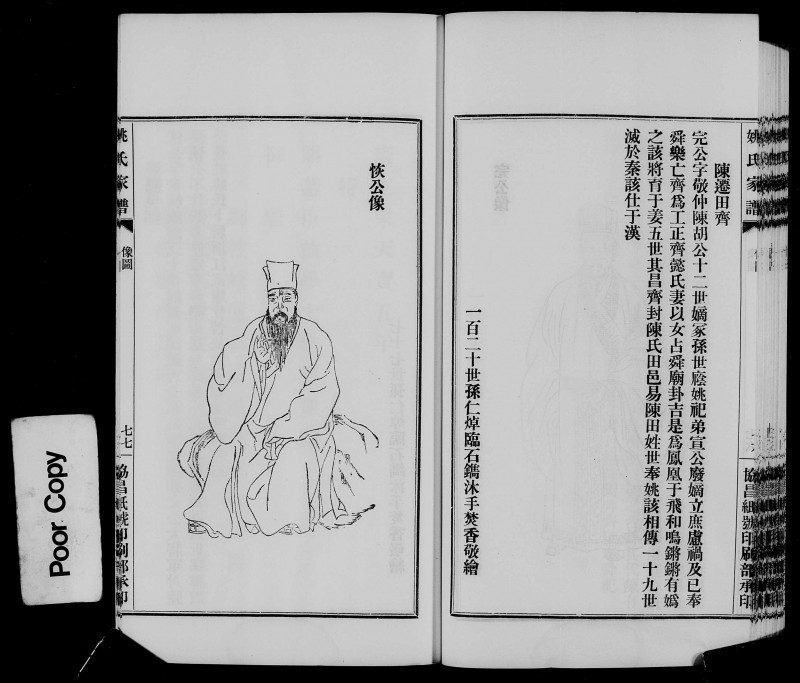 姚氏家譜
協昌紙號印刷部承印
陳遷田齊
完公字敬仲陳胡公十二世嫡冢孫世廕姚祀弟宣公廢嫡立庶慮禍及已奉
舜樂亡齊爲工正齊懿氏妻以女占舜廟卦吉是爲鳳凰于飛和鳴鏘鏘有嬀
之該將育于姜五世其昌齊封陳氏田邑易陳田姓世奉姚該相傳一十九世
滅於秦該仕于漢
一百二十世孫仁焯臨石鐫沐手焚香敬繪
恢公像
姚氏家譜
像圖
七七
協昌紙號印刷部承印
Poor Copy